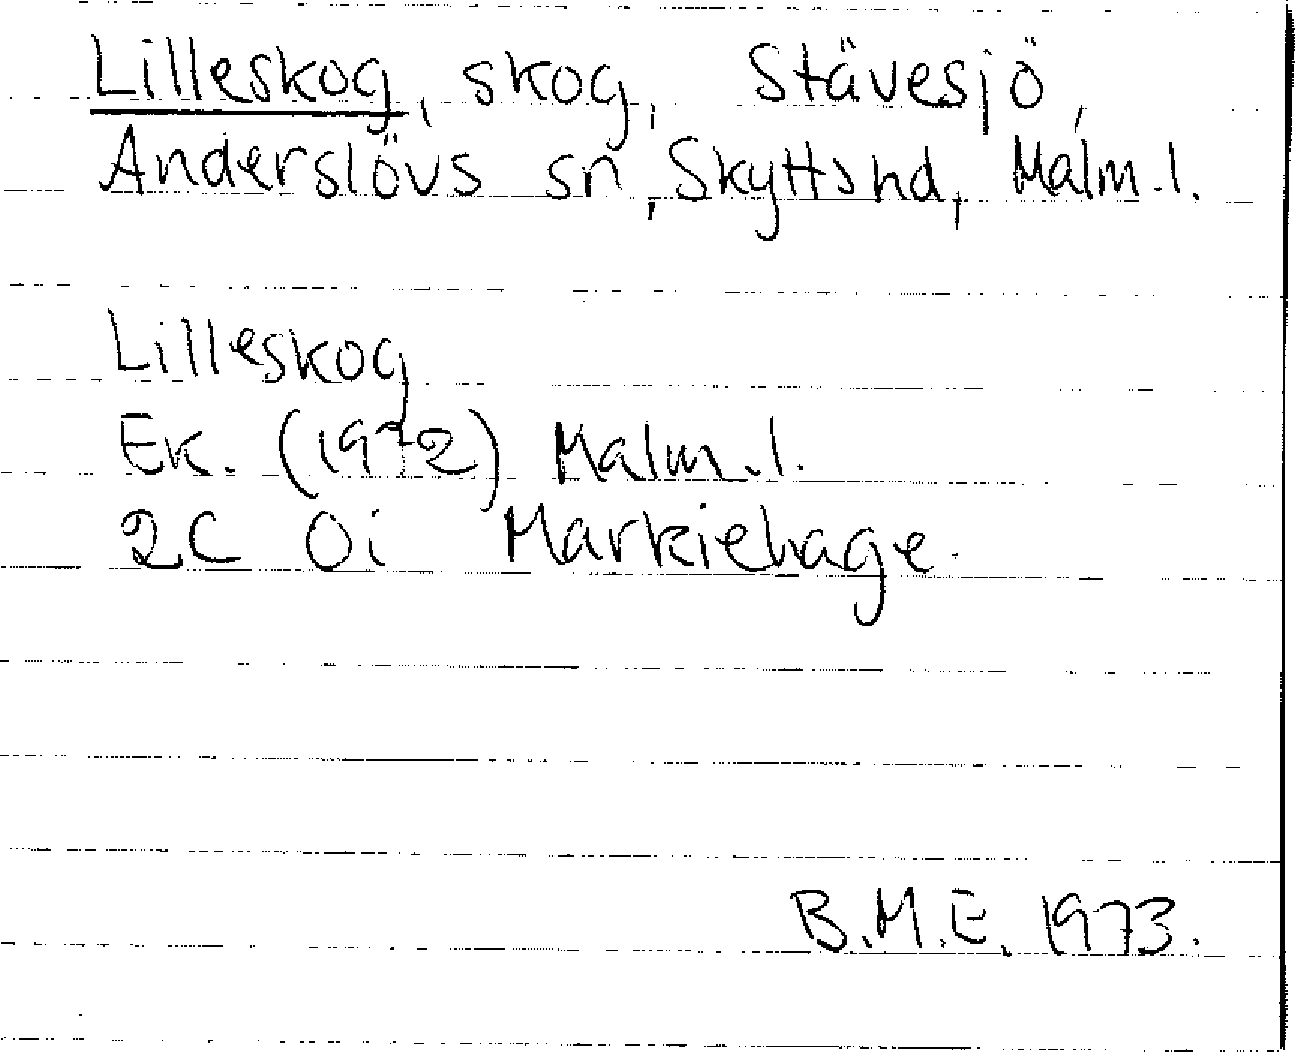 Lilleskog, skog, Stävesjö,
Anderslövs sn, Skytts hd, Malm.l.
Lilleskog
Ek. (1972) Malm.l.
2C Oi Markiehage.
B.M.E. 1973.